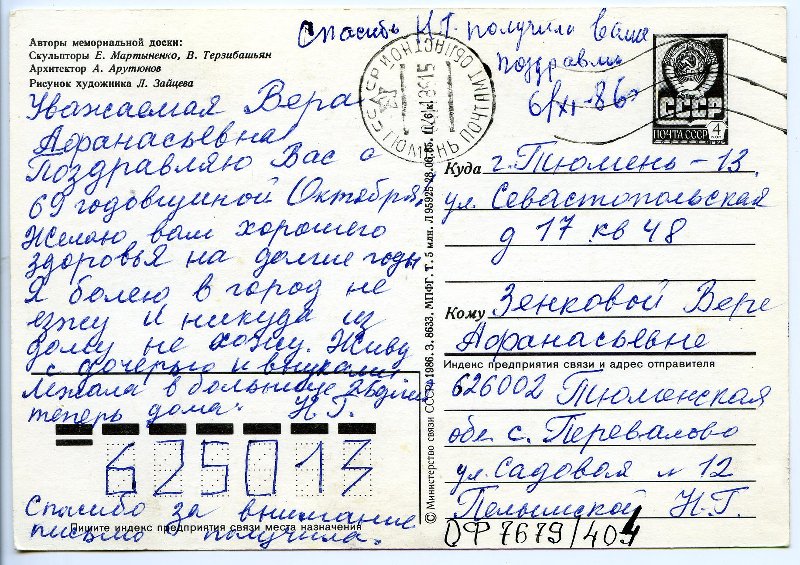 Авторы мемориальной доски:
Скульпторы Е. Мартыненко, В. Терзибашьян
Архитектор А. Арутюнов
Рисунок художника Л. Зайцева
Спасибо Н.Г. получила ваше
поздравл
6/XI-86г
Уважаемая Вера
Афанасьевна
Поздравляю Вас с
69 годовщиной Октября.
Желаю вам хорошего
здоровья на долгие годы
Я болею в город не
езжу и никуда из
дому не хожу. Живу
с дочерью и внуками
Лежала в больнице
теперь дома. Н.Г.
625013
Спасибо за внимание
письмо получила.
Пишите индекс предприятия связи места назначения
© Министерство связи СССР. 1986. З. 8633. МПФГ. Т. 5 млн. Л 95925 28.06.85. Ц. 6 к.
ПОЧТАМТ ОБЛАСТНОЙ
СССР
ПОЧТА СССР 4
Куда г. Тюмень-13
ул. Севастопольская
д 17 кв 48
Кому Зенковой Вере
Афанасьевне
Индекс предприятия связи и адрес отправителя
626002 Тюменская
обл с. Перевалово
ул. Садовая № 12
Пелымской Н.Г.
ОФ 7679/404